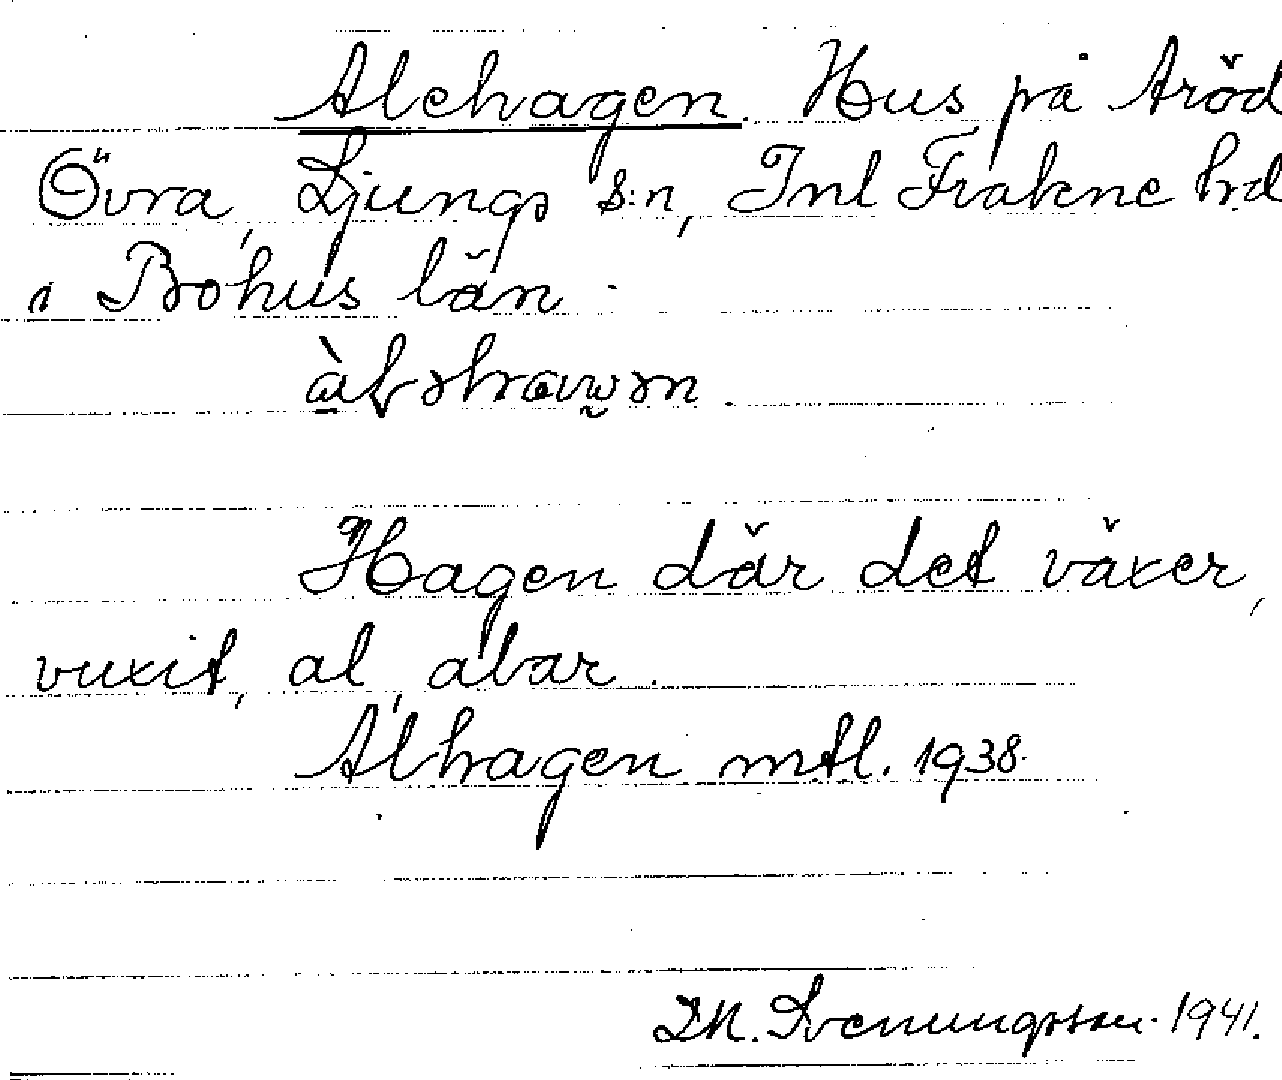 Alehagen. Hus på Aröd
Övra, Ljungs s:n, Inl Fräkne hd
i Bohus län.
Hagen där det växer,
vuxit, al, alar.
Alhagen mtl. 1938.
Svenungsson. 1941.